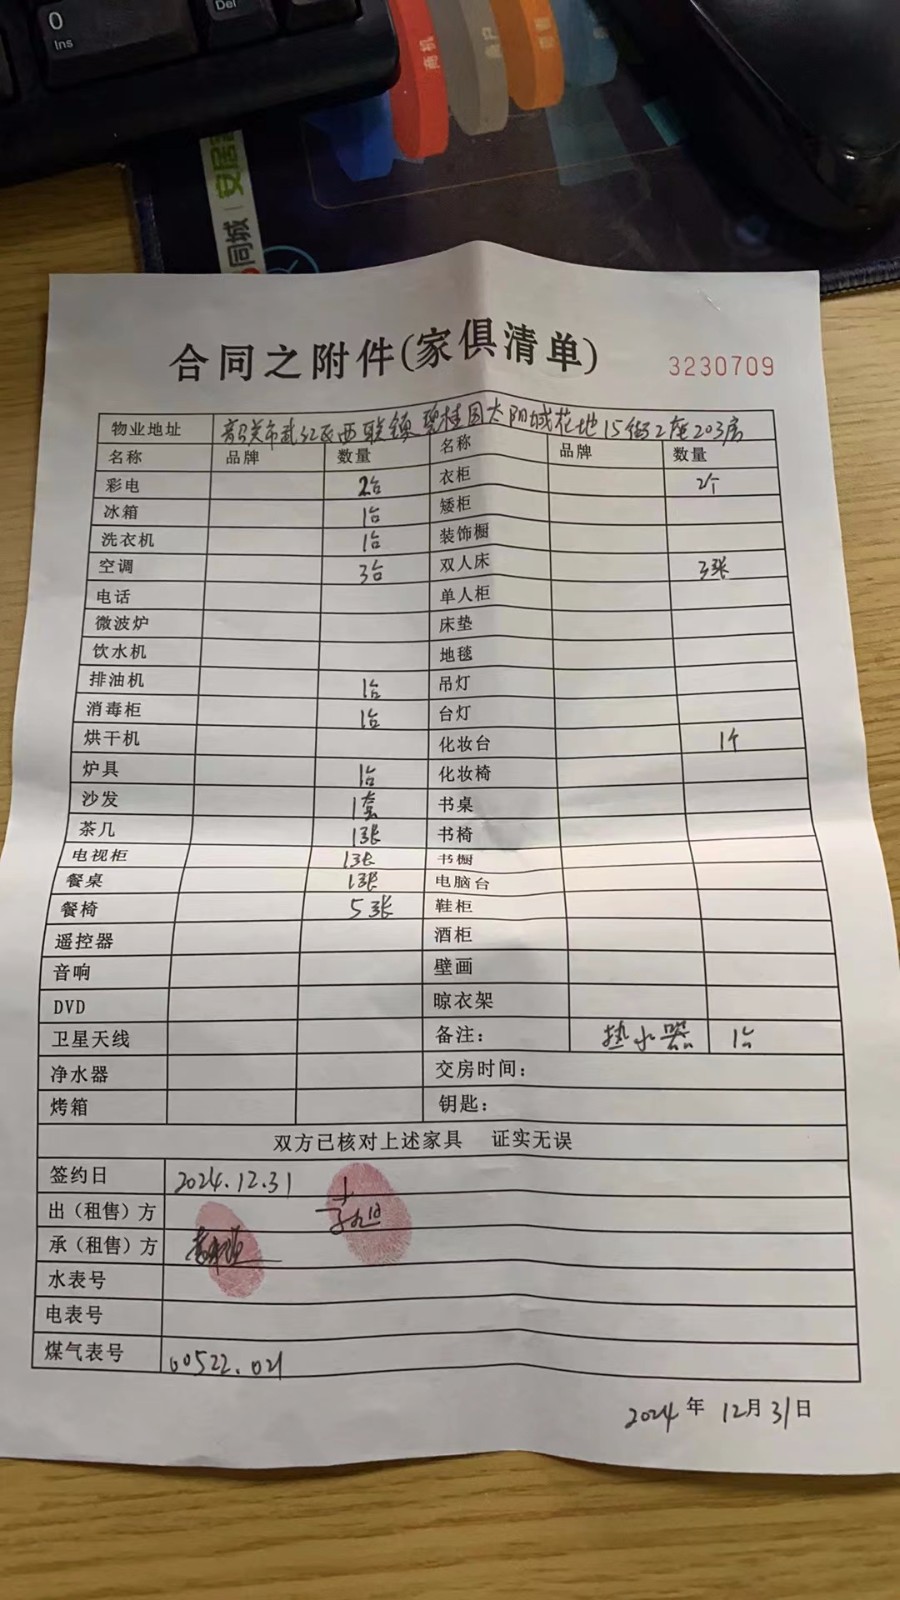 0
Ins
Del
商机
同城 | 安居
合同之附件(家俱清单)
3230709
物业地址 韶关市武江区西联镇碧桂园太阳城花地15街2座203房
名称 品牌 数量 名称 品牌 数量
彩电 2台 衣柜 2个
冰箱 1台 矮柜
洗衣机 1台 装饰橱
空调 3台 双人床 3张
电话 单人柜
微波炉 床垫
饮水机 地毯
排油机 1台 吊灯
消毒柜 1台 台灯
烘干机 化妆台 1个
炉具 1台 化妆椅
沙发 1套 书桌
茶几 1张 书椅
电视柜 1张 书橱
餐桌 1张 电脑台
餐椅 5张 鞋柜
遥控器 酒柜
音响 壁画
DVD 晾衣架
卫星天线 备注: 热水器 1台
净水器 交房时间:
烤箱 钥匙:
双方已核对上述家具 证实无误
签约日 2024.12.31
出（租售）方
承（租售）方
水表号
电表号
煤气表号 00522.021
2024年 12月31日